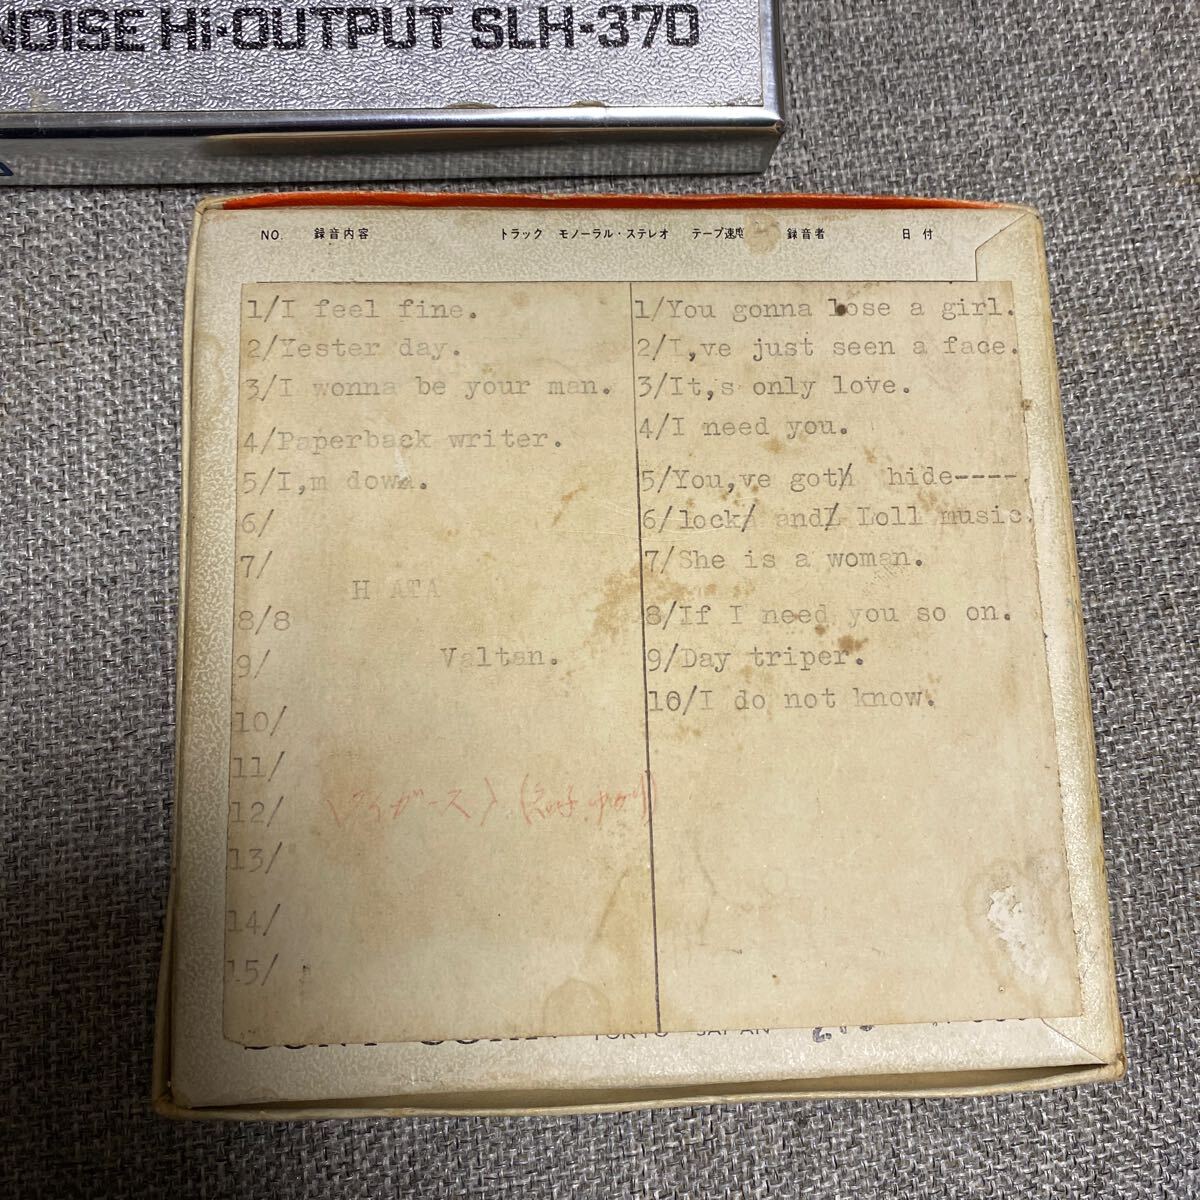 NOISE Hi-OUTPUT SLH-370
NO. 録音内容 トラック モノーラル・ステレオ テープ速度 録音者 日付
1/I feel fine.
2/Yester day.
3/I wonna be your man.
4/Paperback writer.
5/I,m down.
6/
7/
H ATA
8/8
9/ Valtan.
10/
11/
12/ タイガース
13/
14/
15/
1/You gonna lose a girl.
2/I,ve just seen a face.
3/It,s only love.
4/I need you.
5/You,ve goth hide----.
6/lock/ and Loll music.
7/She is a woman.
8/If I need you so on.
9/Day triper.
10/I do not know.
TOKYO JAPAN